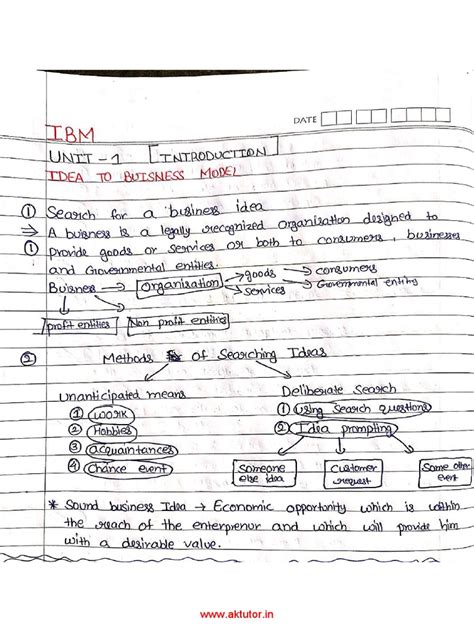 DATE
IBM
UNIT - 1 [INTRODUCTION]
IDEA TO BUISNESS MODEL
① Search for a business idea
⇒ A buisness is a legally recognized organisation designed to
① provide goods or services or both to consumers, businesses
and Governmental entities.
Buisness → Organisation → goods → consumers
→ services → Governmental entity
profit entities Non profit entities
② Methods of Searching Ideas
Unanticipated means Deliberate Search
① work ① Using Search questions
② Hobbies ② Idea prompting
③ acquaintances
④ Chance event
Someone else idea Customer request Some other event
* Sound business Idea → Economic opportunity which is within
the reach of the enterpreneur and which will provide him
with a desirable value.
www.aktutor.in